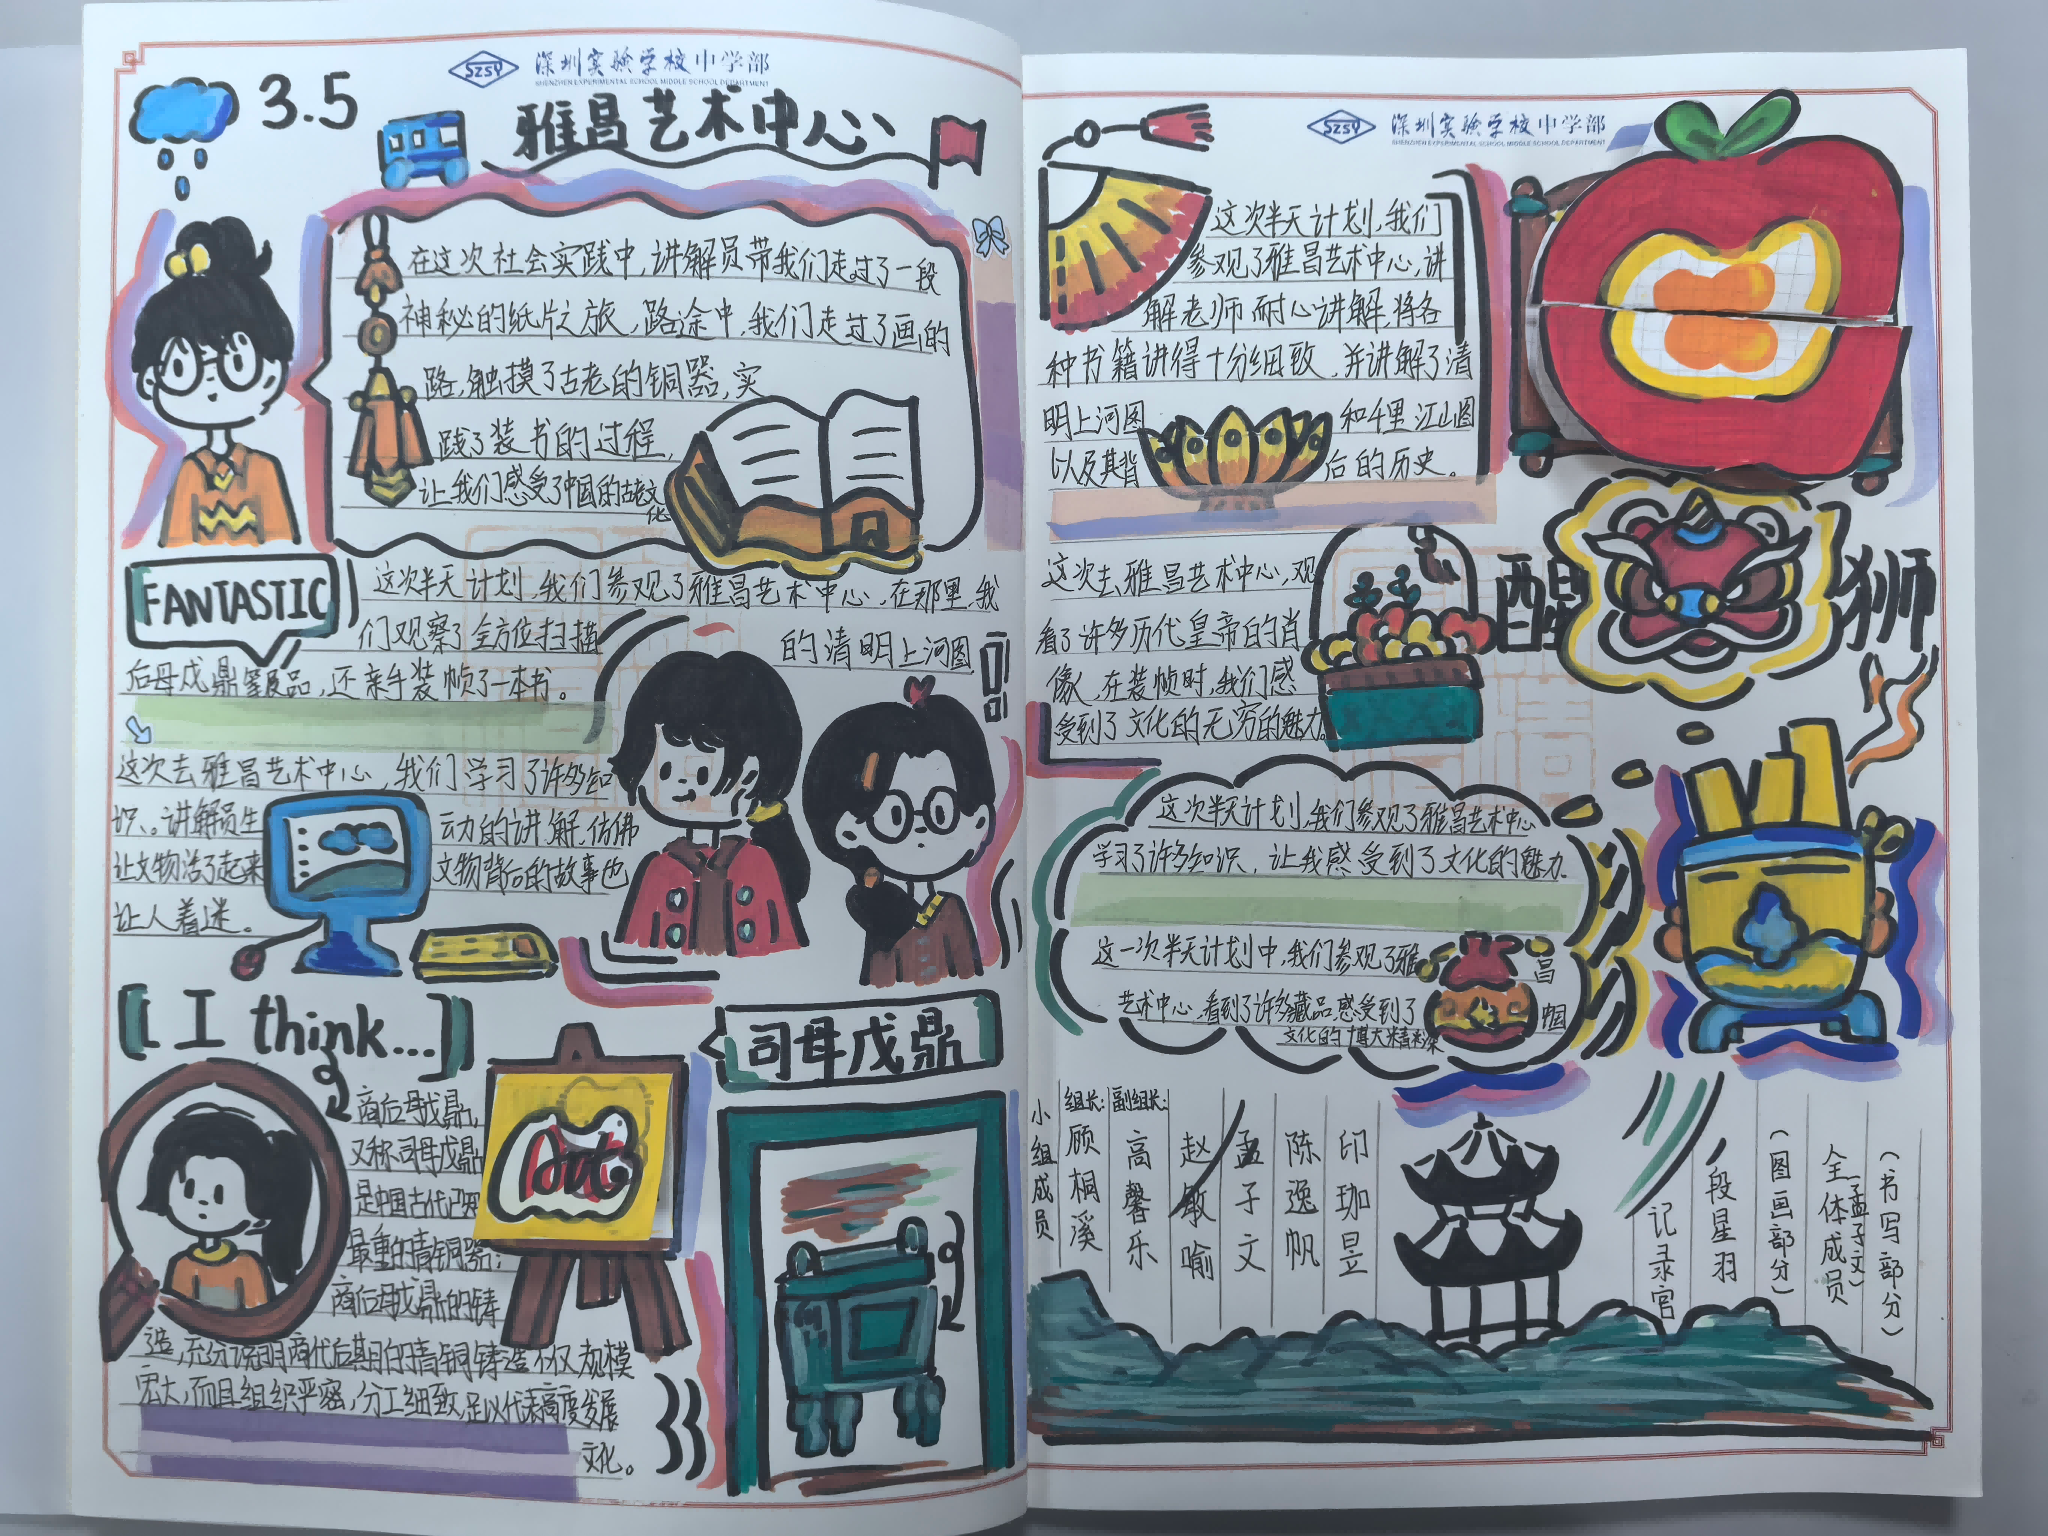 SZSY 深圳实验学校中学部
SHENZHEN EXPERIMENTAL SCHOOL MIDDLE SCHOOL DEPARTMENT
3.5
雅昌艺术中心
在这次社会实践中,讲解员带我们走过了一段
神秘的纸片之旅,路途中,我们走过了画的
路,触摸了古老的铜器,实
践了装书的过程,
让我们感受了中国的古老文
化
FANTASTIC
这次半天计划,我们参观了雅昌艺术中心,在那里,我
们观察了全方位扫描的清明上河图
后母戊鼎等展品,还亲手装帧了一本书。
这次去雅昌艺术中心,我们学习了许多知
识、。讲解员生动的讲解,仿佛
让文物活了起来文物背后的故事也
让人着迷。
[I think...]
商后母戊鼎,
又称司母戊鼎
是中国古代已知
最重的青铜器;
商后母戊鼎的铸
造,充分说明商代后期的青铜铸造不仅规模
宏大,而且组织严密,分工细致,足以代表高度发展
文化。
Art
司母戊鼎
SZSY 深圳实验学校中学部
SHENZHEN EXPERIMENTAL SCHOOL MIDDLE SCHOOL DEPARTMENT
这次半天计划,我们
参观了雅昌艺术中心,讲
解老师耐心讲解,将各
种书籍讲得十分细致,并讲解了清
明上河图和千里江山图
以及其背后的历史。
醒狮
这次去雅昌艺术中心,观
看了许多历代皇帝的肖
像,在装帧时,我们感
受到了文化的无穷的魅力。
这次半天计划,我们参观了雅昌艺术中心
学习了许多知识,让我感受到了文化的魅力.
这一次半天计划中,我们参观了雅昌
艺术中心,看到了许多藏品,感受到了中国
文化的博大精深
小组成员
组长:顾桐溪
副组长:高馨乐
赵敏喻
孟子文
陈逸帆
印珈昱
记录官
段星羽
(图画部分)
全体成员
(孟子文)
(书写部分)